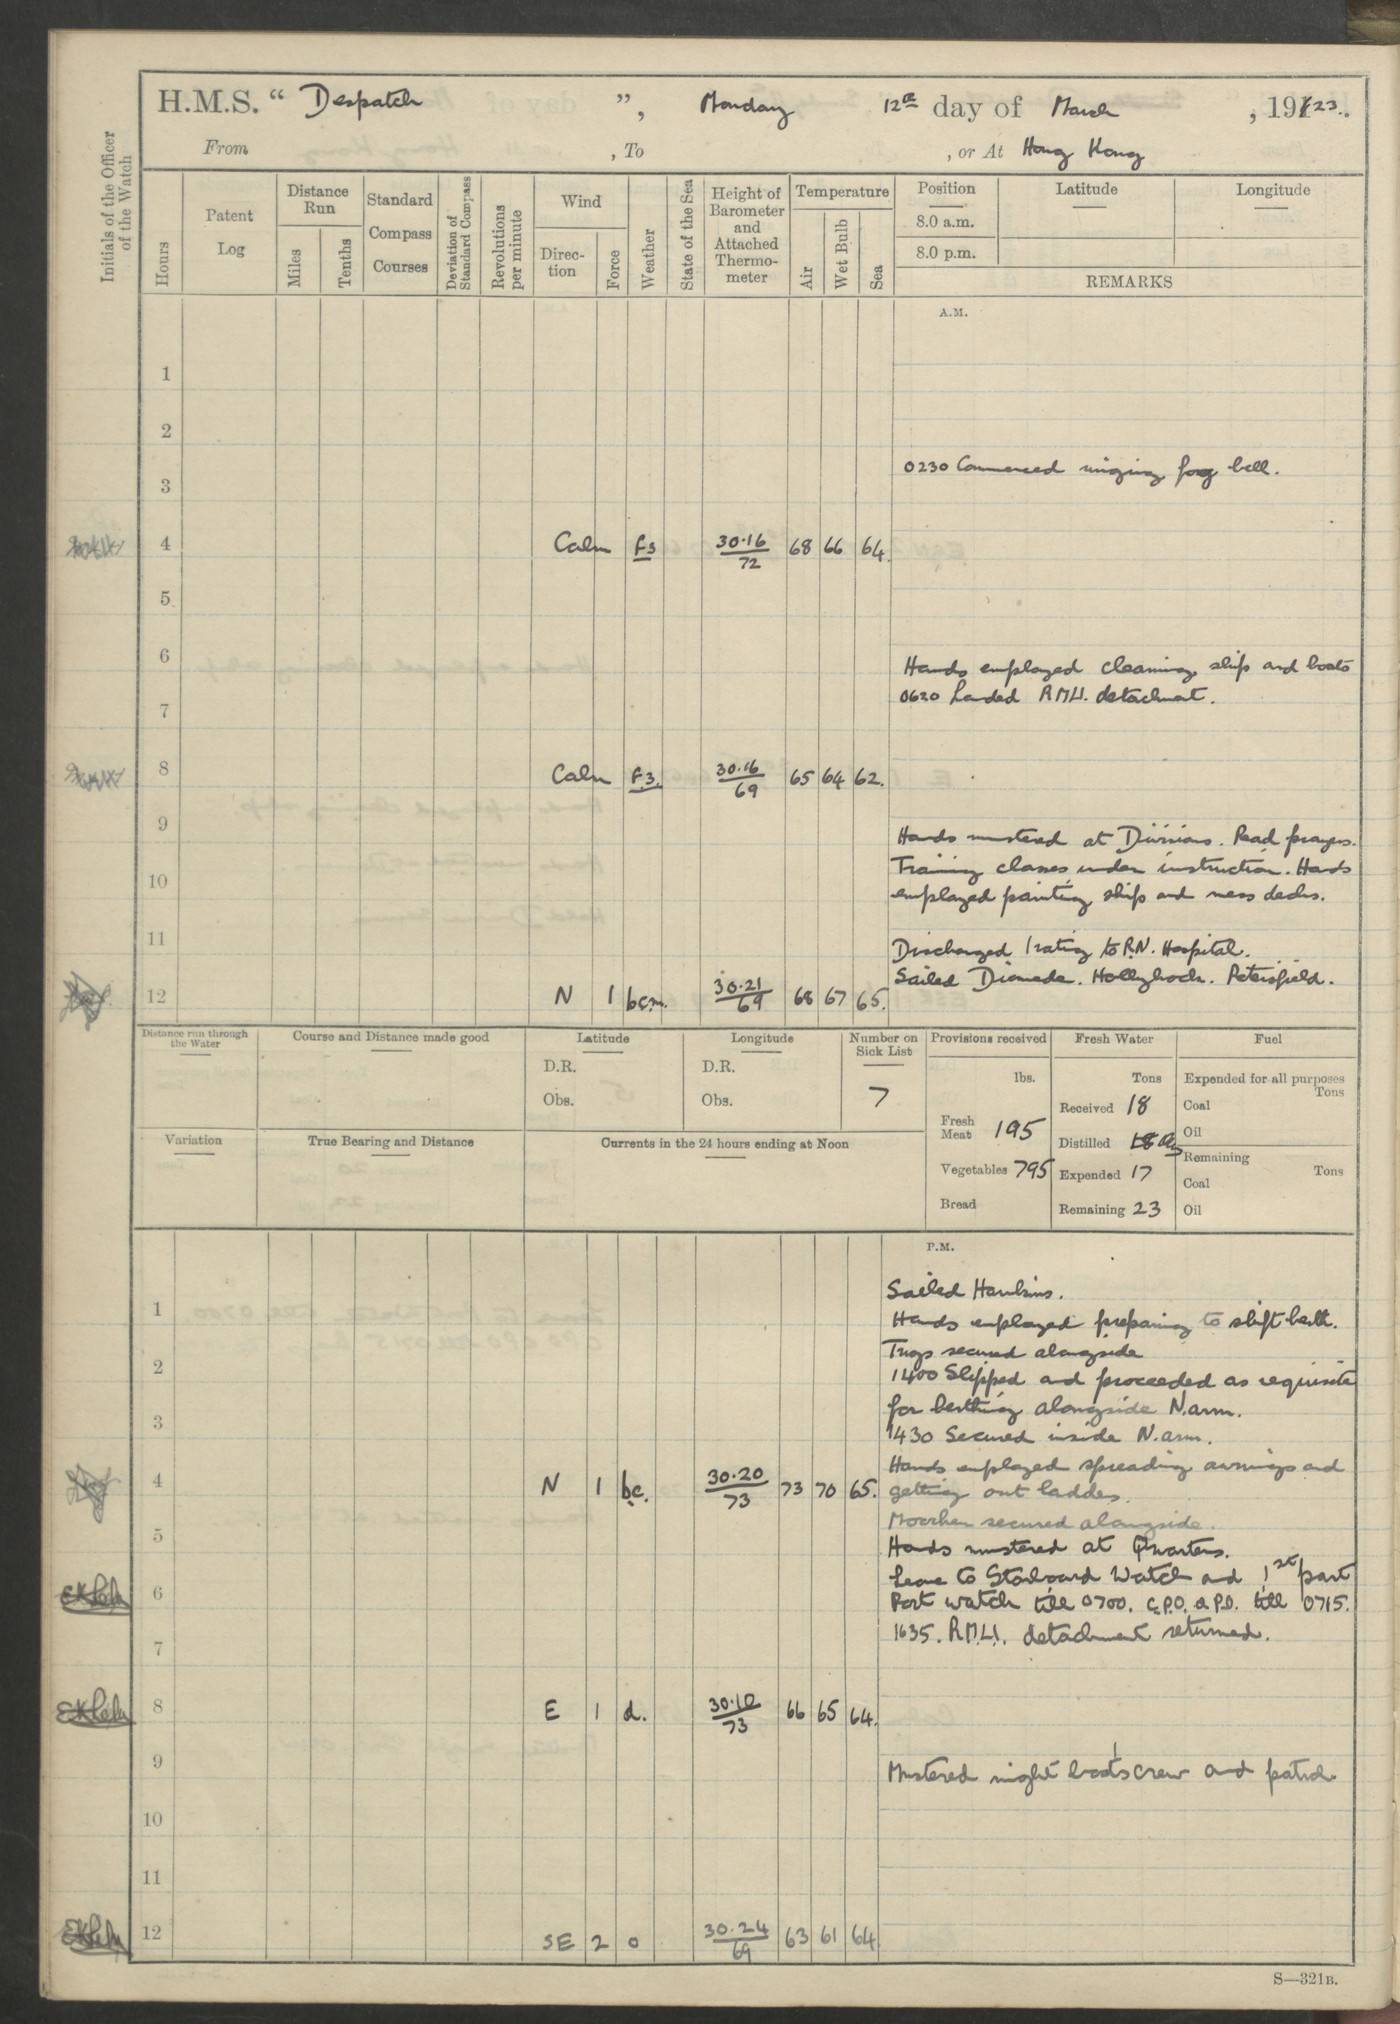 H.M.S. “ Despatch ”, Monday 12th day of March , 1923.
From , To , or At Hong Kong
Initials of the Officer of the Watch
Hours
Patent Log
Distance Run
Miles
Tenths
Standard Compass Courses
Deviation of Standard Compass
Revolutions per minute
Wind
Direction
Force
Weather
State of the Sea
Height of Barometer and Attached Thermometer
Temperature
Air
Wet Bulb
Sea
Position Latitude Longitude
8.0 a.m.
8.0 p.m.
REMARKS
A.M.
1
2
0230 Commenced ringing fog bell.
3
4 Calm f3 30.16/72 68 66 64.
5
6
Hands employed cleaning ship and boats
0620 Landed R.M.L.I. detachment.
7
8 Calm F3. 30.16/69 65 64 62.
9
Hands mustered at Divisions. Read prayers.
Training classes under instruction. Hands
10
employed painting ship and mess decks.
11
Discharged 1 rating to R.N. Hospital.
Sailed Diomede. Hollyhock. Petersfield.
12 N 1 bcm. 30.21/69 68 67 65.
Distance run through the Water
Course and Distance made good
Latitude
D.R.
Obs.
Longitude
D.R.
Obs.
Number on Sick List
7
Provisions received
lbs.
Fresh Meat 195
Vegetables 795
Bread
Fresh Water
Tons
Received 18
Distilled 18
Expended 17
Remaining 23
Fuel
Expended for all purposes
Tons
Coal
Oil
Remaining
Tons
Coal
Oil
Variation
True Bearing and Distance
Currents in the 24 hours ending at Noon
P.M.
Sailed Hawkins.
1
Hands employed preparing to shift berth.
Tugs secured alongside
2
1400 Slipped and proceeded as requisite
for berthing alongside N. arm.
3
1430 Secured inside N. arm.
Hands employed spreading awnings and
4 N 1 bc. 30.20/73 73 70 65.
getting out ladders.
Moorhen secured alongside.
5
Hands mustered at Quarters.
Leave to Starboard Watch and 1st part
6
Port watch till 0700. C.P.O. & P.O. till 0715.
1635. R.M.L.I. detachment returned.
7
8 E 1 d. 30.10/73 66 65 64.
9
Mustered night boats crew and patrol
10
11
12 SE 2 o 30.24/69 63 61 64
S—321B.